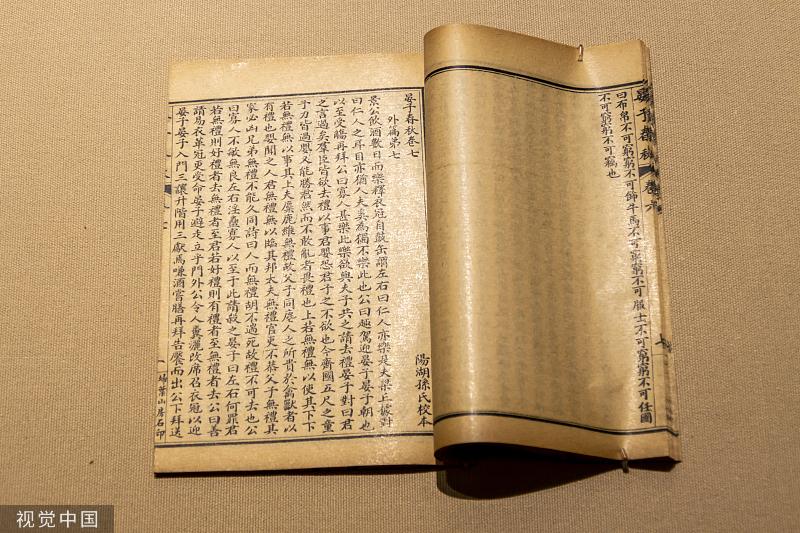 曰布帛不可窮窮不可飾牛馬不可窮窮不可服士不可窮窮不可任國
不可窮窮不可竊也
晏子春秋 卷六
晏子春秋卷七
外篇第七 陽湖孫氏校本
景公飲酒數日而樂釋衣冠自鼓缶謂左右曰仁人亦樂是夫梁丘據對
曰仁人之耳目亦猶人夫奚為獨不樂此也公曰趣駕迎晏子晏子朝
以至受觴再拜公曰寡人甚樂此樂欲與夫子共之請去禮晏子對曰君
之言過矣羣臣皆欲去禮以事君嬰恐君子之不欲也今齊國五尺之童
子力皆過嬰又能勝君然而不敢亂者畏禮也上若無禮無以使其下下
若無禮無以事其上夫麋鹿維無禮故父子同麀人之所貴於禽獸者以
有禮也嬰聞之人君無禮無以臨其邦大夫無禮官吏不恭父子無禮其
家必凶兄弟無禮不能久同詩曰人而無禮胡不遄死故禮不可去也公
曰寡人不敏無良左右淫蠱寡人以至于此請殺之晏子曰左右何罪君
若無禮則好禮者去無禮者至君若好禮則有禮者至無禮者去公曰善
請易衣革冠更受命晏子避走立乎門外公令人糞灑改席召衣冠以迎
晏子晏子入門三讓升階用三獻焉嗛酒嘗膳再拜告饜而出公下拜送
掃葉山房石印
视觉中国